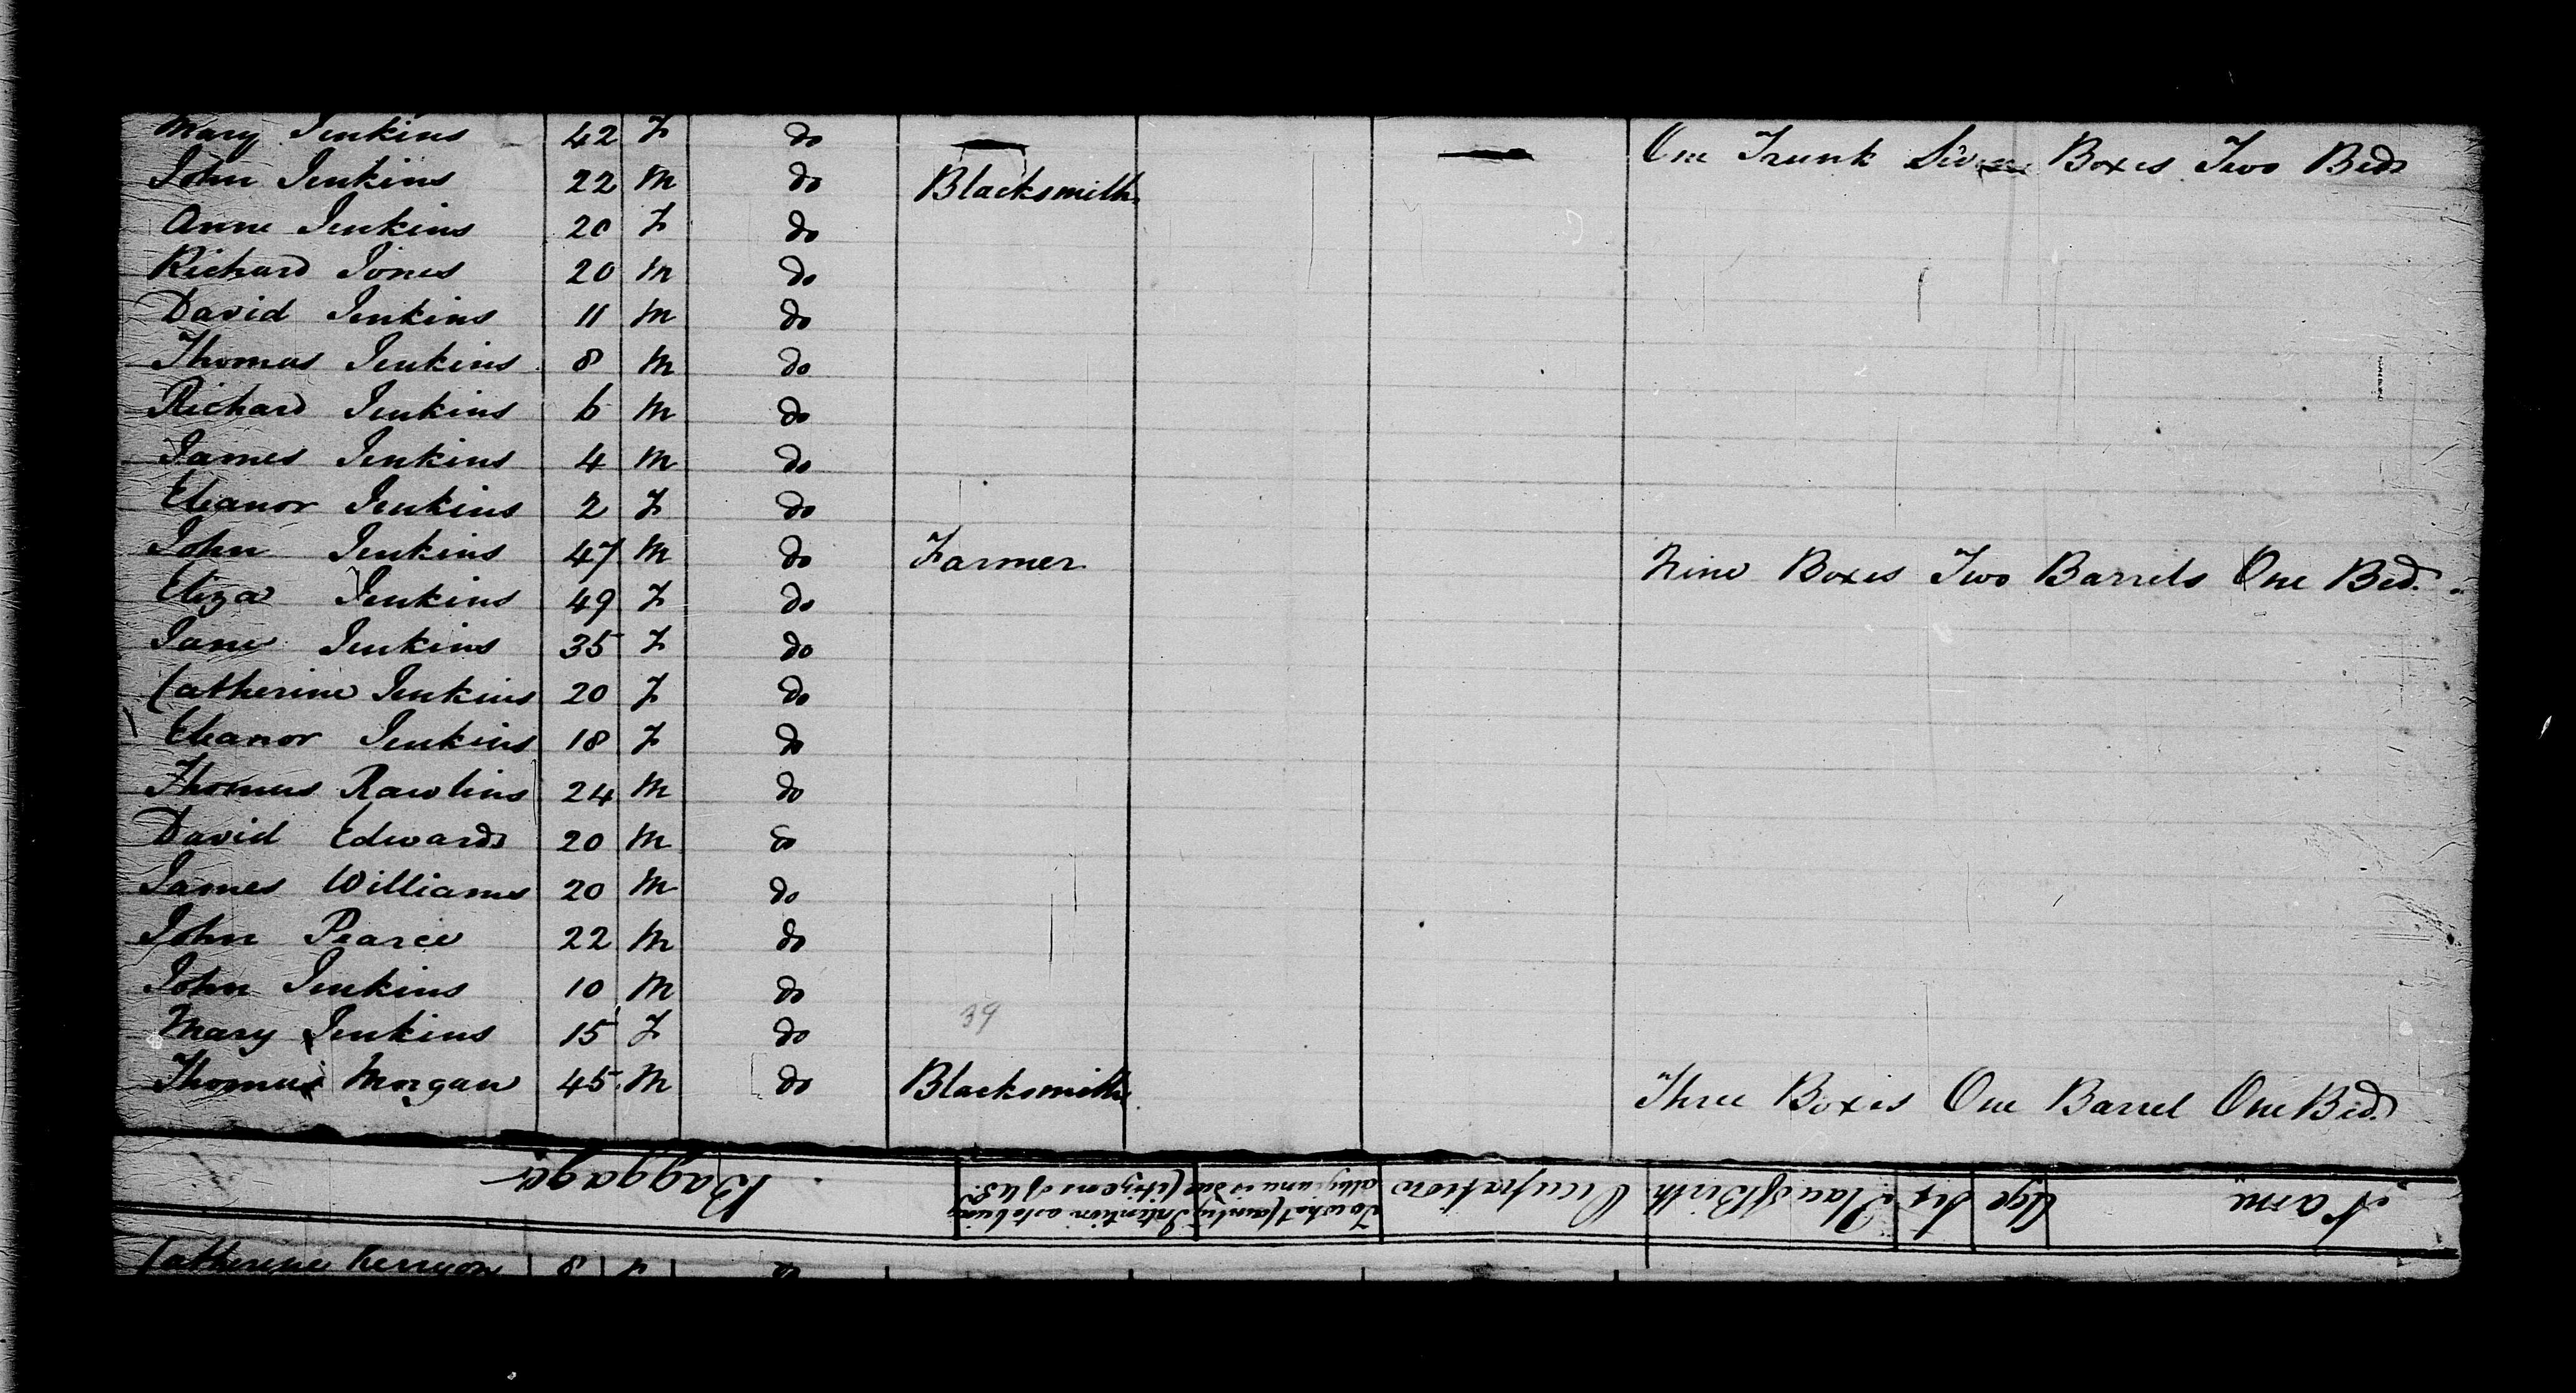 Mary Jenkins 42 F do — — One Trunk Seven Boxes Two Beds
John Jenkins 22 M do Blacksmith
Anne Jenkins 20 F do
Richard Jones 20 M do
David Jenkins 11 M do
Thomas Jenkins 8 M do
Richard Jenkins 6 M do
James Jenkins 4 M do
Eleanor Jenkins 2 F do
John Jenkins 47 M do Farmer Nine Boxes Two Barrels One Bed.
Eliza Jenkins 49 F do
Jane Jenkins 35 F do
Catherine Jenkins 20 F do
Eleanor Jenkins 18 F do
Thomas Rawlins 24 M do
David Edwards 20 M do
James Williams 20 M do
John Pearce 22 M do
John Jenkins 10 M do
39
Mary Jenkins 15 F do
Thomas Morgan 45 M do Blacksmith Three Boxes One Barrel One Bed.
Name Age Sex Place of Birth Occupation To what Country allegiance is due Intention as to being Citizens of U.S. Baggage
Catherine 8 F do